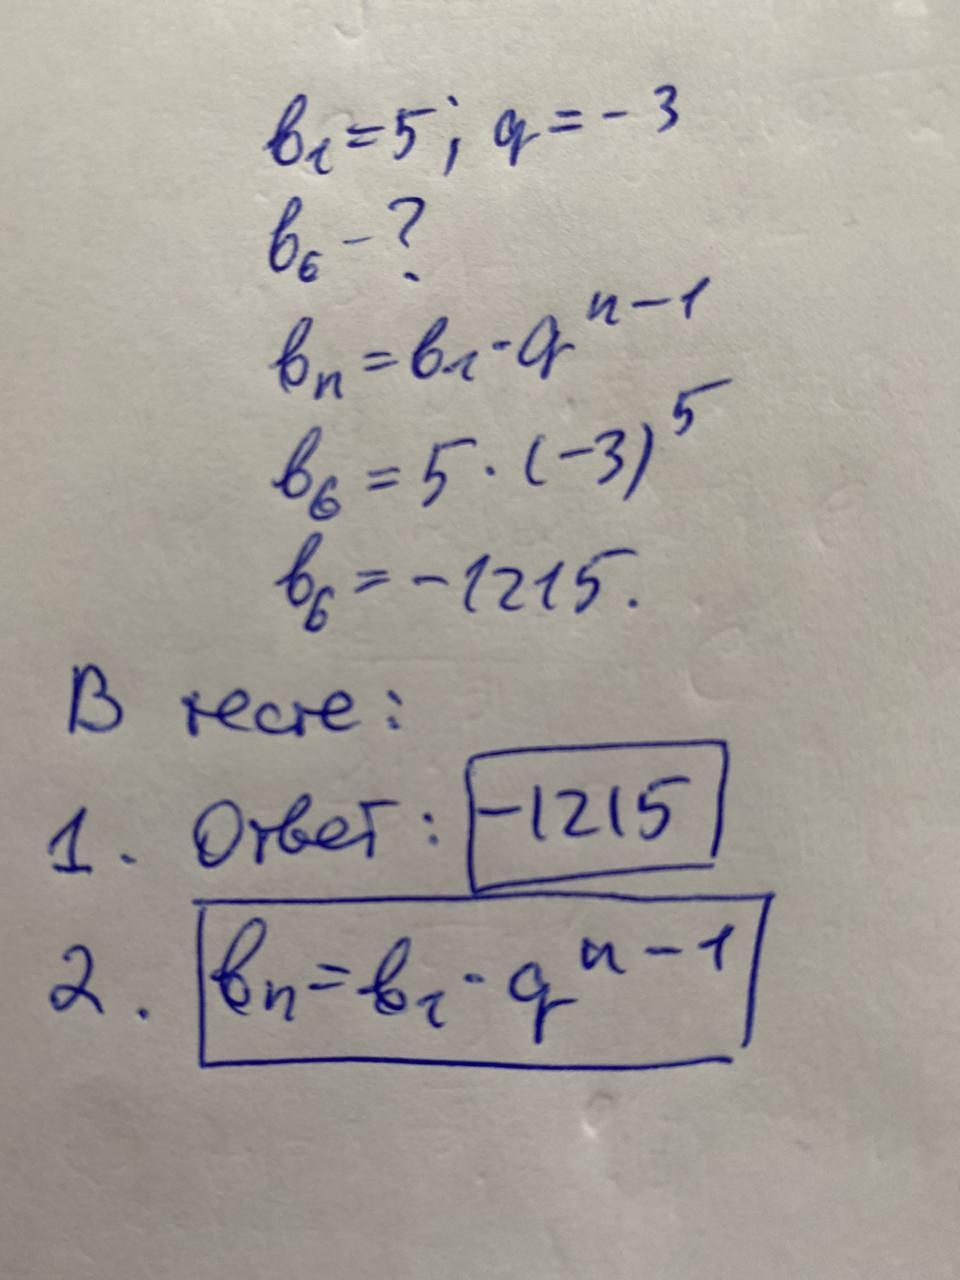 в₁ = 5; q = -3
в₆ - ?
вₙ = в₁ · qⁿ⁻¹
в₆ = 5 · (-3)⁵
в₆ = -1215.
В тесте:
1. Ответ: -1215
2. вₙ = в₁ · qⁿ⁻¹